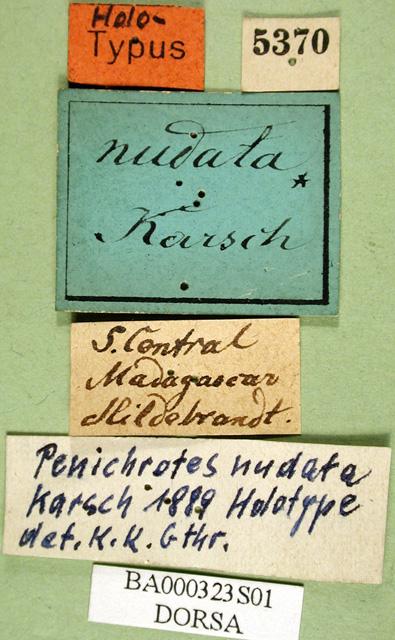 Holo-
Typus
5370
nudata
Karsch
S. Central
Madagascar
Hildebrandt.
Penichrotes nudata
Karsch 1889 Holotype
det. K. K. Gthr.
BA000323S01
DORSA